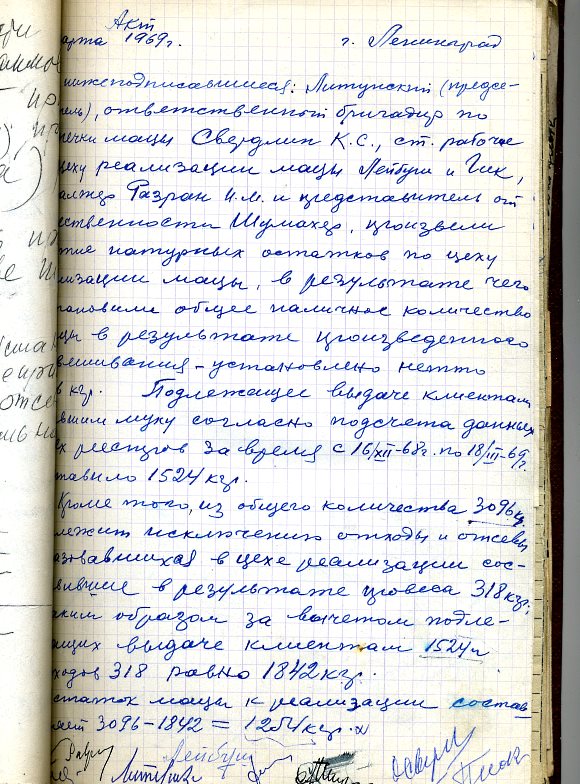 Акт
арта 1969г. г. Ленинград
нижеподписавшиеся: Литунский (предсе-
тель), ответственный бригадир по
печки мацы Свердлин К.С., ст. рабочие
цеху реализации мацы Лейбуш и Гик,
алтер Разран И.М. и представитель от
ественности Шумахер, произвели
тие натурных остатков по цеху
лизации мацы, в результате чего
тановили общее наличное количество
цы в результате произведенного
вешивания - установлено нетто
6 кгр. Подлежащее выдаче клиентам
вшим муку согласно подсчета данных
ех реестров за время с 16/XII-68г. по 18/III-69г.
тавило 1524 кгр.
Кроме того, из общего количества 3096 кгр.
лежит исключению отходы и отсевы
азовавшихся в цехе реализации сос-
вившие в результате провеса 318 кгр.;
аким образом за вычетом подле-
ащих выдаче клиентам 1524 и
ходов 318 равно 1842 кгр.
статок мацы к реализации состав
яет 3096-1842 = 1254 кгр.
Лейбуш